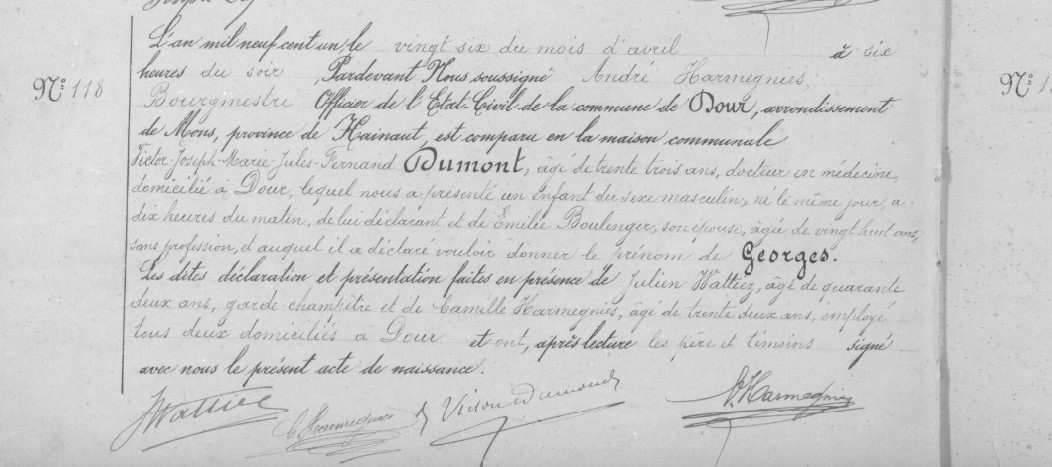 L'an mil neuf cent un, le vingt six du mois d'avril à six
Nº 118
heures du soir, Pardevant Nous soussigné André Harmegnies,
Bourgmestre Officier de l'Etat-Civil de la commune de Dour, arrondissement
de Mons, province de Hainaut, est comparu en la maison communale
Victor-Joseph-Marie-Jules-Fernand Dumont, âgé de trente trois ans, docteur en médecine,
domicilié à Dour, lequel nous a présenté un enfant du sexe masculin, né le même jour, à
dix heures du matin, de lui déclarant et de Emilie Boulenger, son épouse, âgée de vingt huit ans,
sans profession, et auquel il a déclaré vouloir donner le prénom de Georges.
Les dites déclaration et présentation faites en présence de Julien Wattiez, âgé de quarante
deux ans, garde-champêtre et de Camille Harmegnies, âgé de trente deux ans, employé
tous deux domiciliés à Dour et ont, après lecture les père et témoins signé
avec nous le présent acte de naissance.
JWattiez C Harmegnies Victor Dumont A. Harmegnies
Nº 1